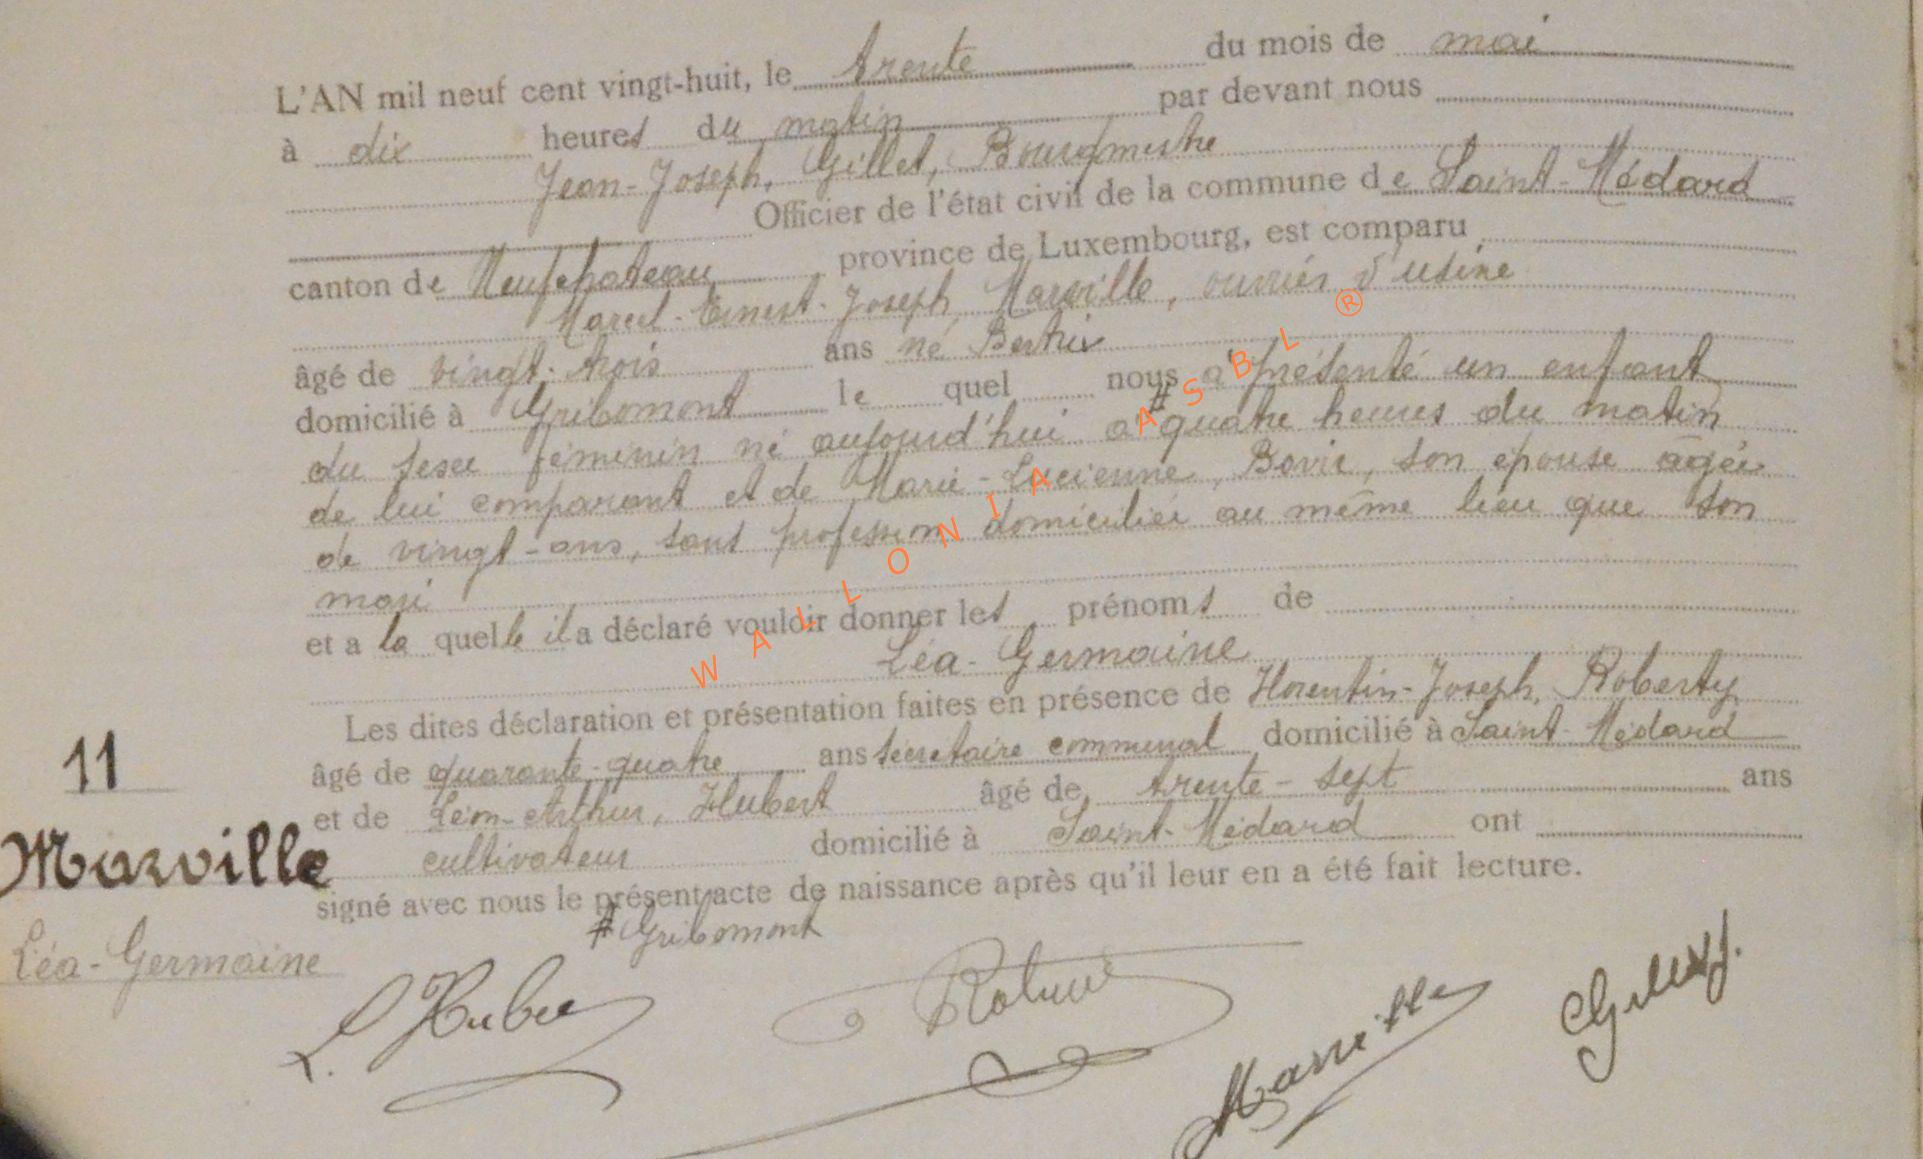 L'AN mil neuf cent vingt-huit, le trente du mois de mai
à dix heures du matin par devant nous
Jean-Joseph, Gillet, Bourgmestre
Officier de l'état civil de la commune de Saint-Médard
canton de Neufchateau province de Luxembourg, est comparu
Marcel-Ernest-Joseph, Marville, ouvrier d'usine
âgé de vingt-trois ans né Bertrix
domicilié à Gribomont le quel nous a présenté un enfant
du sexe féminin né aujourd'hui à # quatre heures du matin
de lui comparant et de Marie-Lucienne, Bovir, son épouse âgée
de vingt-ans, sans profession domiciliée au même lieu que son
mari
et a la quelle il a déclaré vouloir donner les prénoms de
Léa-Germaine
Les dites déclaration et présentation faites en présence de Florentin-Joseph, Roberty
âgé de quarante-quatre ans secrétaire communal domicilié à Saint-Médard
et de Léon-Arthur, Hubert âgé de trente-sept ans
cultivateur domicilié à Saint-Médard ont
signé avec nous le présent acte de naissance après qu'il leur en a été fait lecture.
# Gribomont
11
Marville
Léa-Germaine
L. Hubert
Marville
WALLONIA ASBL ®